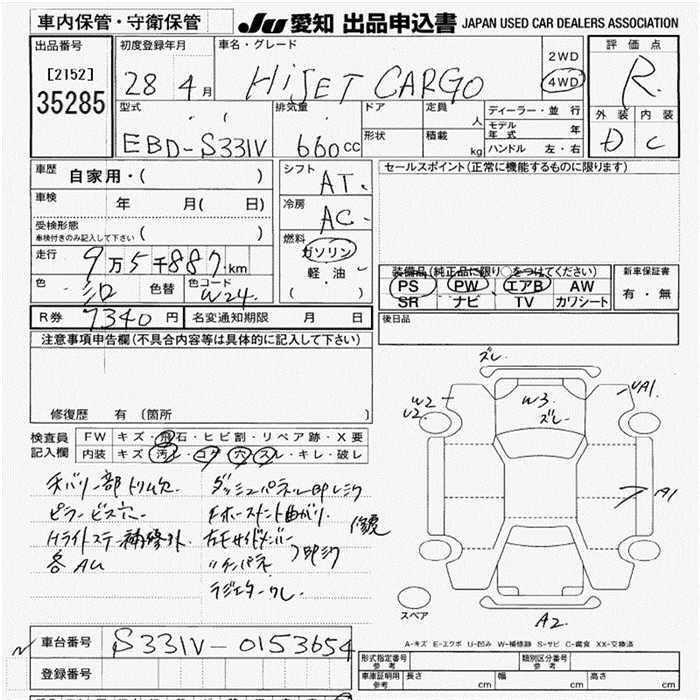 車内保管・守衛保管
JU 愛知 出品申込書 JAPAN USED CAR DEALERS ASSOCIATION
出品番号
[2152]
35285
初度登録年月
28 4月
車名・グレード
HiJET CARGO
2WD
4WD
評価点
R
外装 内装
D C
型式
EBD-S331V
排気量
660cc
ドア
形状
定員
人
積載
kg
ディーラー・並行
モデル年式 年
ハンドル 左・右
車歴
自家用・( )
車検
年 月( 日)
受検形態
車検付きのみ記入して下さい ( )
走行
9万5千887km
色
色替
色コード
W24
シフト
AT
冷房
AC
燃料
ガソリン
軽油
( )
セールスポイント(正常に機能するものに限ります)
装備品(純正品に限り○をつけてください)
PS PW エアB AW
SR ナビ TV カワシート
新車保証書
有・無
R券 7340円
名変通知期限 月 日
後日品
注意事項申告欄(不具合内容等は具体的に記入して下さい)
修復歴 有 (箇所 )
検査員記入欄
FW キズ・飛石・ヒビ割・リペア跡・X要
内装 キズ・汚レ・コゲ・穴・スレ・キレ・破レ
ダッシュパネル
各AU
ズレ
W2
U2
W3
ズレ
UA1
A1
A2
スペア
A-キズ E-エクボ U-凹み W-補修跡 S-サビ C-腐食 XX-交換済
車台番号
S331V-0153654
登録番号
形式指定番号
参考
類別区分番号
参考
車庫証明用
参考
長さ cm
幅 cm
高さ cm